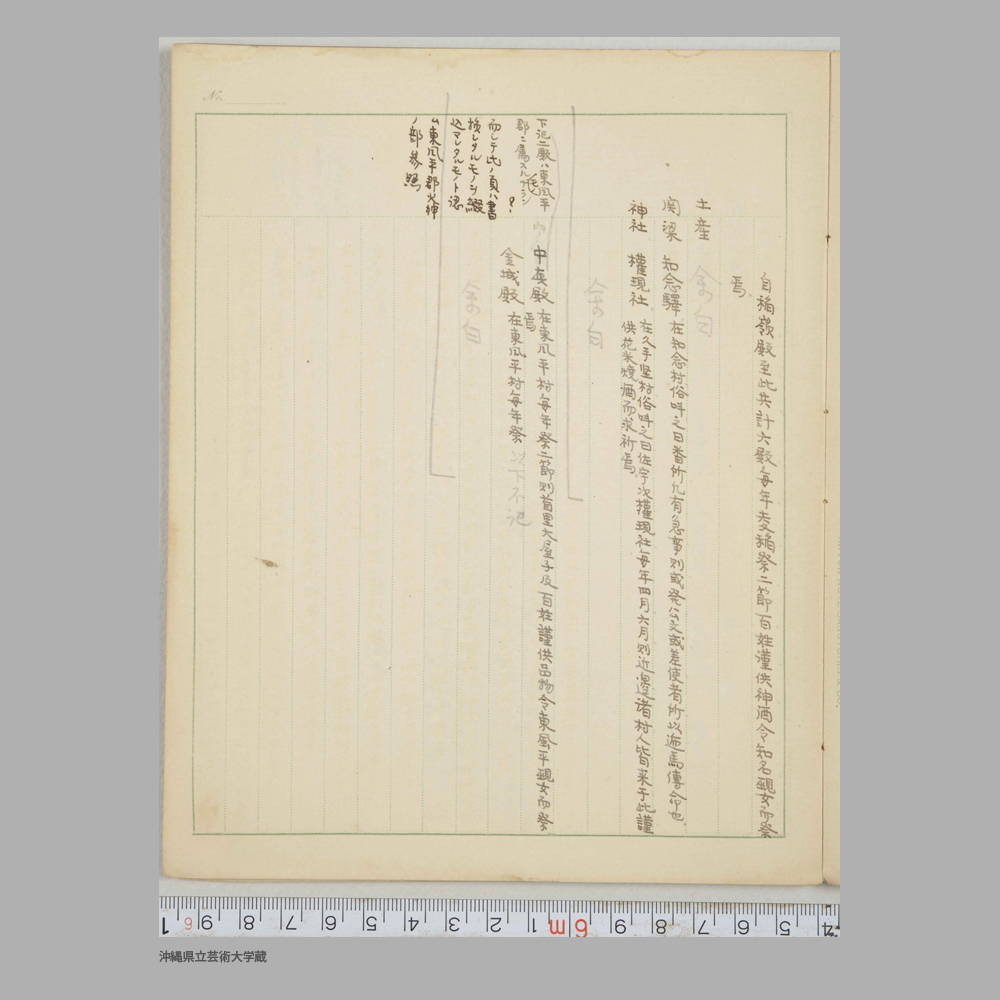 自稲嶺殿至此共計六殿毎年麦稲祭二節百姓謹供神酒令知名覡女而祭
焉、
土産
余白
関梁 知念驛 在知念村俗呼之曰番所凡有急事則或発公文或差使者所以遞馬傳命也
神社 權現社 在久手堅村俗呼之曰佐宇次權現社毎年四月六月則近邊諸村人皆来于此謹
供花米焼酒而求祈焉、
余白
下記二殿ハ東風平
郡ニ属スルナラン
？
而シテ此ノ頁ハ書
損シタルモノヲ綴
込マレタルモノト認
ム東風平郡火神
ノ部参照
中
中真殿 在東風平村毎年祭二節則首里大屋子及百姓謹供品物令東風平覡女而祭
焉
金城殿 在東風平村毎年祭 以下不記
余白
No.
1 6 9 8 7 6 5 4 3 2 1 6m 9 8 7 6 5 4
沖縄県立芸術大学蔵